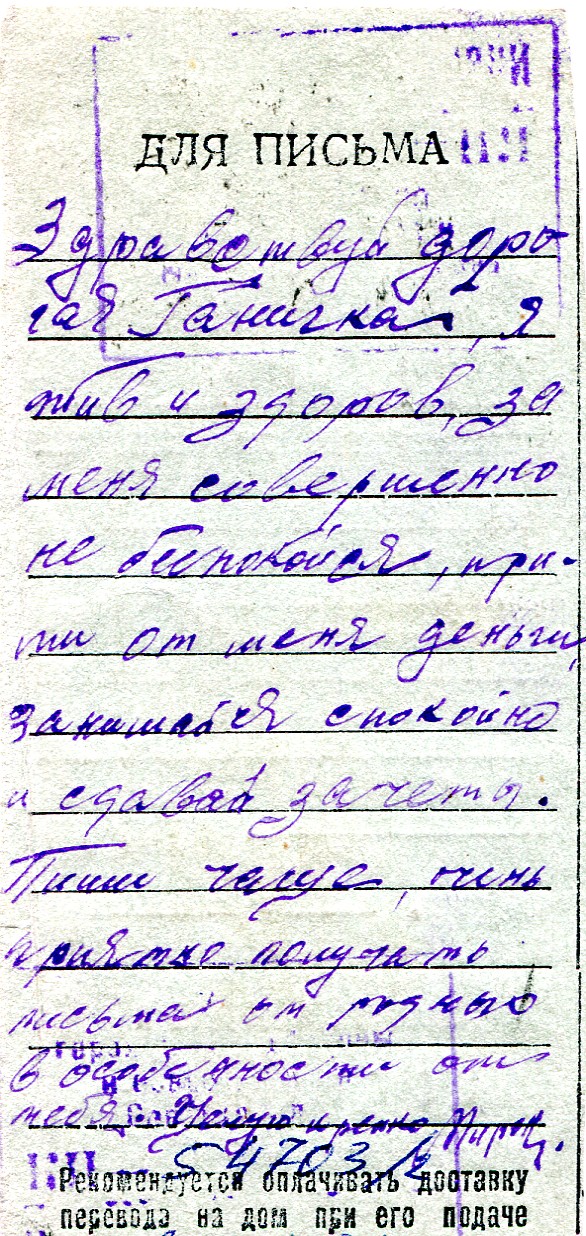 ДЛЯ ПИСЬМА
Здравствуй доро-
гая Ганичка, я
жив и здоров, за
меня совершенно
не беспокойся, при-
ми от меня деньги,
занимайся спокойно
и сдавай зачеты.
Пиши чаще, очень
приятно получать
письма от родных
в особенности от
тебя. Целую крепко
54703/2
Рекомендуется оплачивать доставку
перевода на дом при его подаче